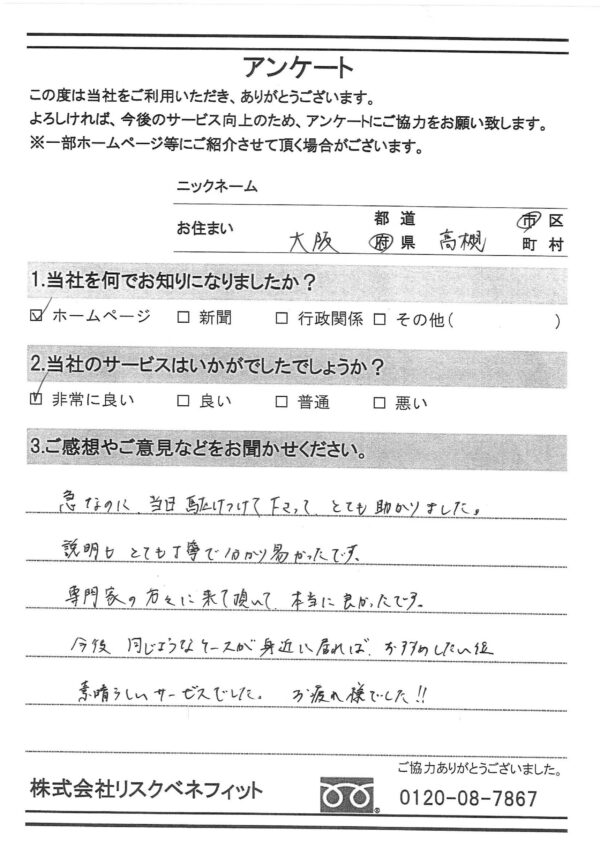 アンケート
この度は当社をご利用いただき、ありがとうございます。
よろしければ、今後のサービス向上のため、アンケートにご協力をお願い致します。
※一部ホームページ等にご紹介させて頂く場合がございます。
ニックネーム
お住まい 大阪 都道府県 高槻 市区町村
1.当社を何でお知りになりましたか？
☑ ホームページ □ 新聞 □ 行政関係 □ その他( )
2.当社のサービスはいかがでしたでしょうか？
☑ 非常に良い □ 良い □ 普通 □ 悪い
3.ご感想やご意見などをお聞かせください。
急なのに、当日駆けつけて下さって、とても助かりました。
説明もとても丁寧で分かり易かったです。
専門家の方々に来て頂いて、本当に良かったです。
今後同じようなケースが身近に居れば、おすすめしたい位
素晴らしいサービスでした。 お疲れ様でした!!
ご協力ありがとうございました。
株式会社リスクベネフィット
0120-08-7867